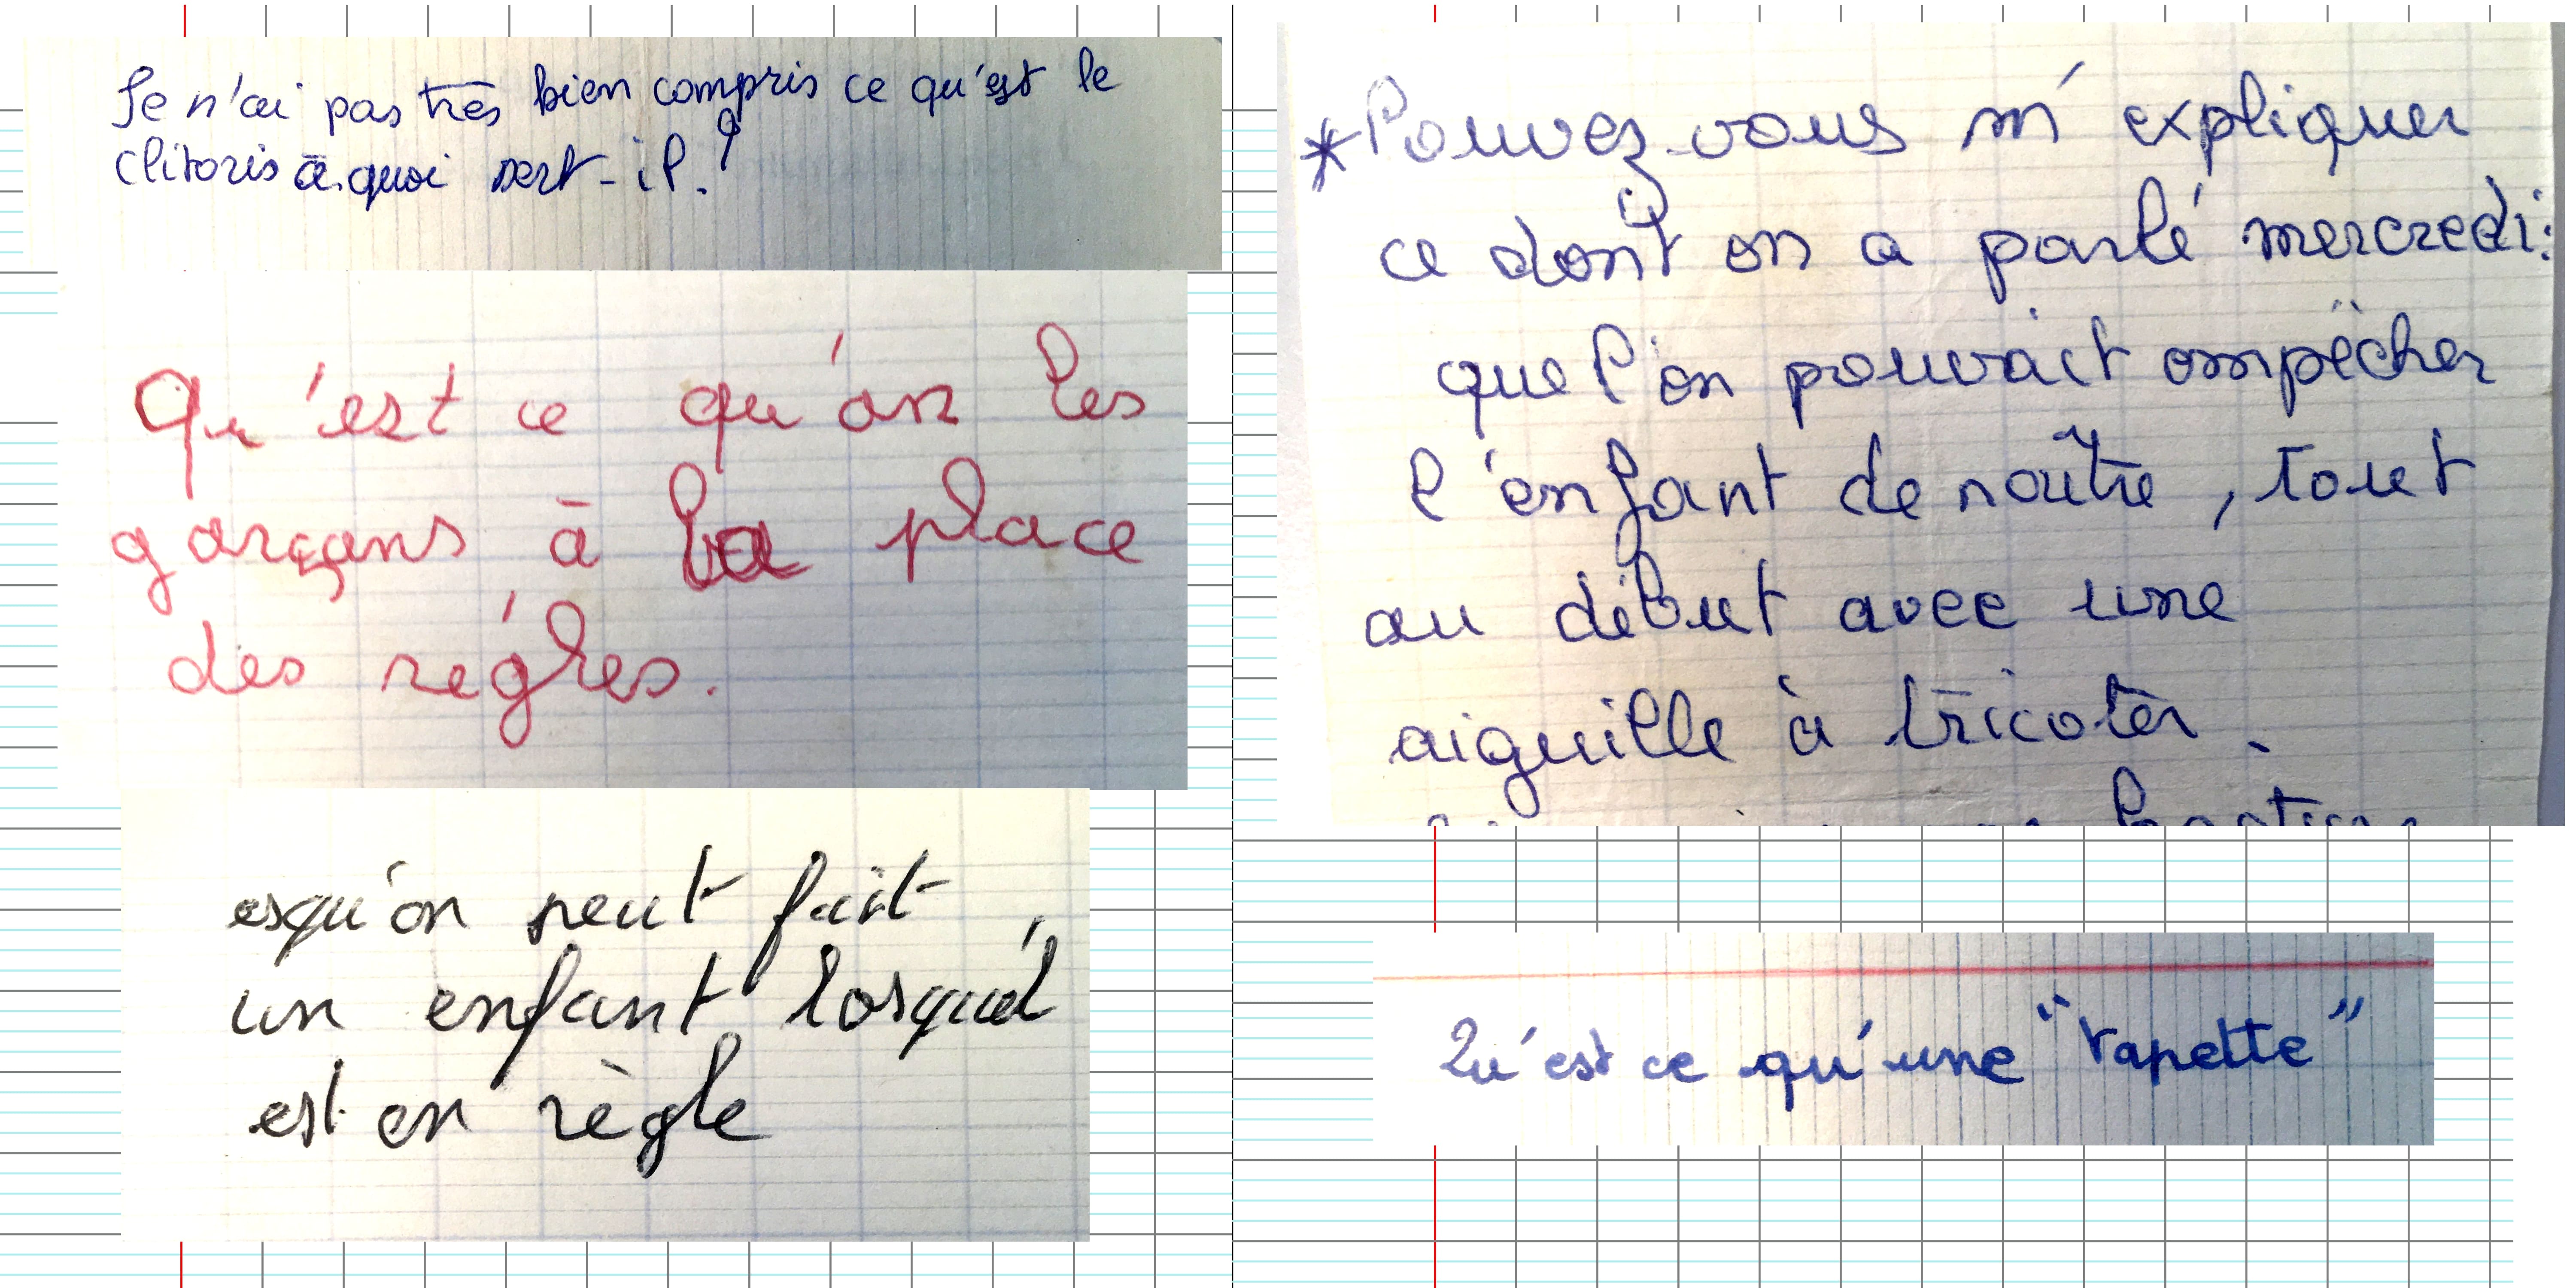 Je n'ai pas très bien compris ce qu'est le
clitoris à quoi sert-il.?
Qu'est ce qu'on les
garçons à la place
des règles.
esqu'on peut fait
un enfant losqu'el
est en règle
*Pouvez-vous m'expliquer
ce dont on a parlé mercredi:
que l'on pouvait empêcher
l'enfant de naître, tout
au début avec une
aiguille à tricoter.
Qu'est ce qu'une "tapette"